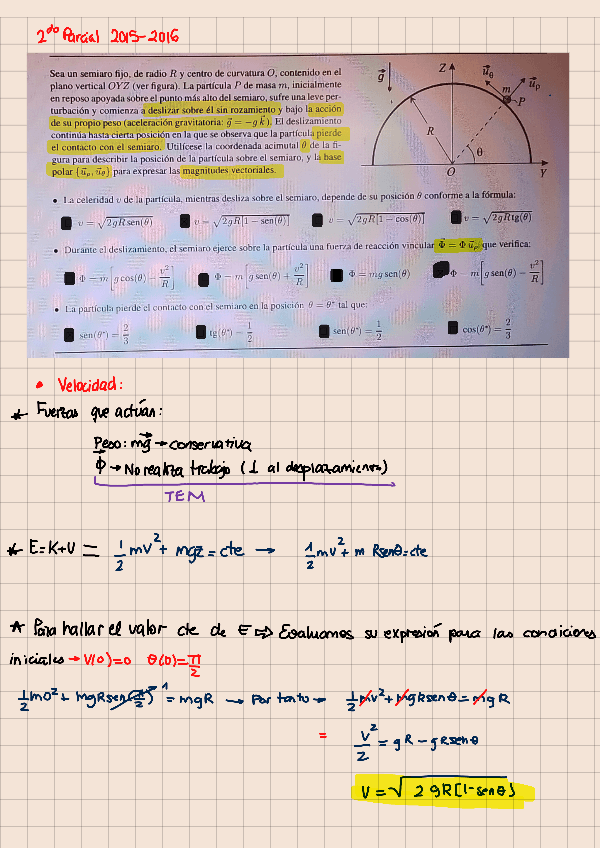 2do Parcial 2015-2016
Sea un semiaro fijo, de radio R y centro de curvatura O, contenido en el
plano vertical OYZ (ver figura). La partícula P de masa m, inicialmente
en reposo apoyada sobre el punto más alto del semiaro, sufre una leve per-
turbación y comienza a deslizar sobre él sin rozamiento y bajo la acción
de su propio peso (aceleración gravitatoria: g⃗ = −g k⃗). El deslizamiento
continúa hasta cierta posición en la que se observa que la partícula pierde
el contacto con el semiaro. Utilícese la coordenada acimutal θ de la fi-
gura para describir la posición de la partícula sobre el semiaro, y la base
polar {u⃗ρ, u⃗θ} para expresar las magnitudes vectoriales.
g⃗ Z u⃗θ u⃗ρ m P R θ O Y
• La celeridad v de la partícula, mientras desliza sobre el semiaro, depende de su posición θ conforme a la fórmula:
v = √2gR sen(θ) v = √2gR[1 − sen(θ)] v = √2gR[1 − cos(θ)] v = √2gR tg(θ)
• Durante el deslizamiento, el semiaro ejerce sobre la partícula una fuerza de reacción vincular Φ⃗ = Φ u⃗ρ que verifica:
Φ = m [g cos(θ) − v²/R] Φ = m [g sen(θ) + v²/R] Φ = mg sen(θ) Φ = m [g sen(θ) − v²/R]
• La partícula pierde el contacto con el semiaro en la posición θ = θ* tal que:
sen(θ*) = 2/3 tg(θ*) = 1/2 sen(θ*) = 1/2 cos(θ*) = 2/3
• Velocidad:
* Fuerzas que actúan:
Peso: mg⃗ → conservativa
Φ⃗ → No realiza trabajo (⊥ al desplazamiento)
TEM
* E = K+U = 1/2 mv² + mgz = cte → 1/2 mv² + m Rsenθ = cte
* Para hallar el valor cte de E ⇒ Evaluamos su expresión para las condiciones
iniciales → V(0)=0 θ(0)=π/2
1/2 m0² + mgRsen(π/2) 1 = mgR → Por tanto → 1/2 mv² + mgRsenθ = mgR
= v²/2 = gR − gRsenθ
V = √2gR[1-senθ]